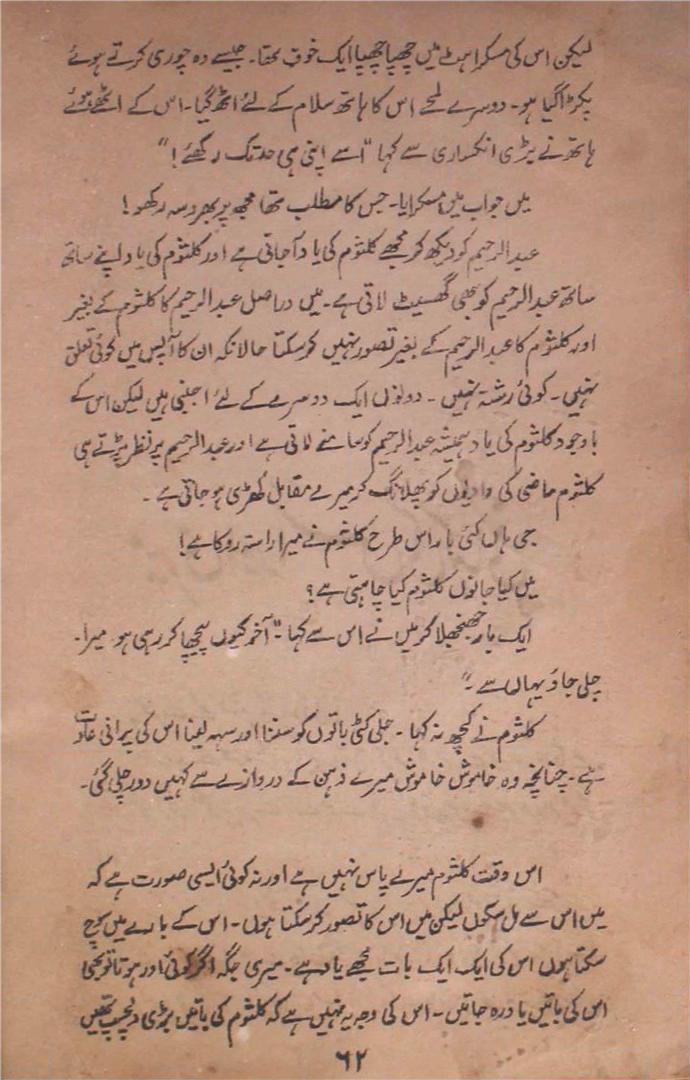 لیکن اس کی مسکراہٹ میں چھپا چھپا ایک خوف تھا۔ جیسے وہ چوری کرتے ہوئے
پکڑا گیا ہو۔ دوسرے لمحے اس کا ہاتھ سلام کے لئے اٹھ گیا۔ اس کے اٹھے ہوئے
ہاتھ نے بڑی انکساری سے کہا "اسے اپنی ہی حد تک رکھئے!"
میں جواب میں مسکرایا۔ جس کا مطلب تھا مجھ پر بھروسہ رکھو!
عبدالرحیم کو دیکھ کر مجھے کلثوم کی یاد آجاتی ہے اور کلثوم کی یاد اپنے ساتھ
ساتھ عبدالرحیم کو بھی گھسیٹ لاتی ہے۔ میں دراصل عبدالرحیم کا کلثوم کے بغیر
اور کلثوم کا عبدالرحیم کے بغیر تصور نہیں کرسکتا حالانکہ ان کا آپس میں کوئی تعلق
نہیں۔ کوئی رشتہ نہیں۔ دونوں ایک دوسرے کے لئے اجنبی ہیں لیکن اس کے
باوجود کلثوم کی یاد ہمیشہ عبدالرحیم کو سامنے لاتی ہے اور عبدالرحیم پر نظر پڑتے ہی
کلثوم ماضی کی وادیوں کو پھلانگ کر میرے مقابل کھڑی ہو جاتی ہے۔
جی ہاں کئی بار اس طرح کلثوم نے میرا راستہ روکا ہے!
میں کیا جانوں کلثوم کیا چاہتی ہے؟
ایک بار جھنجھلا کر میں نے اس سے کہا۔ "آخر کیوں پیچھا کر رہی ہو میرا۔
چلی جاؤ یہاں سے۔"
کلثوم نے کچھ نہ کہا۔ جلی کٹی باتوں کو سننا اور سہہ لینا اس کی پرانی عادت
ہے۔ چنانچہ وہ خاموش خاموش میرے ذہن کے دروازے سے کہیں دور چلی گئی۔
اس وقت کلثوم میرے پاس نہیں ہے اور نہ کوئی ایسی صورت ہے کہ
میں اس سے مل سکوں لیکن میں اس کا تصور کرسکتا ہوں۔ اس کے بارے میں سوچ
سکتا ہوں اس کی ایک ایک بات مجھے یاد ہے۔ میری جگہ اگر کوئی اور ہوتا تو بھی
اس کی باتیں یاد رہ جاتیں۔ اس کی وجہ یہ نہیں ہے کہ کلثوم کی باتیں بڑی دلچسپ تھیں
۶۲